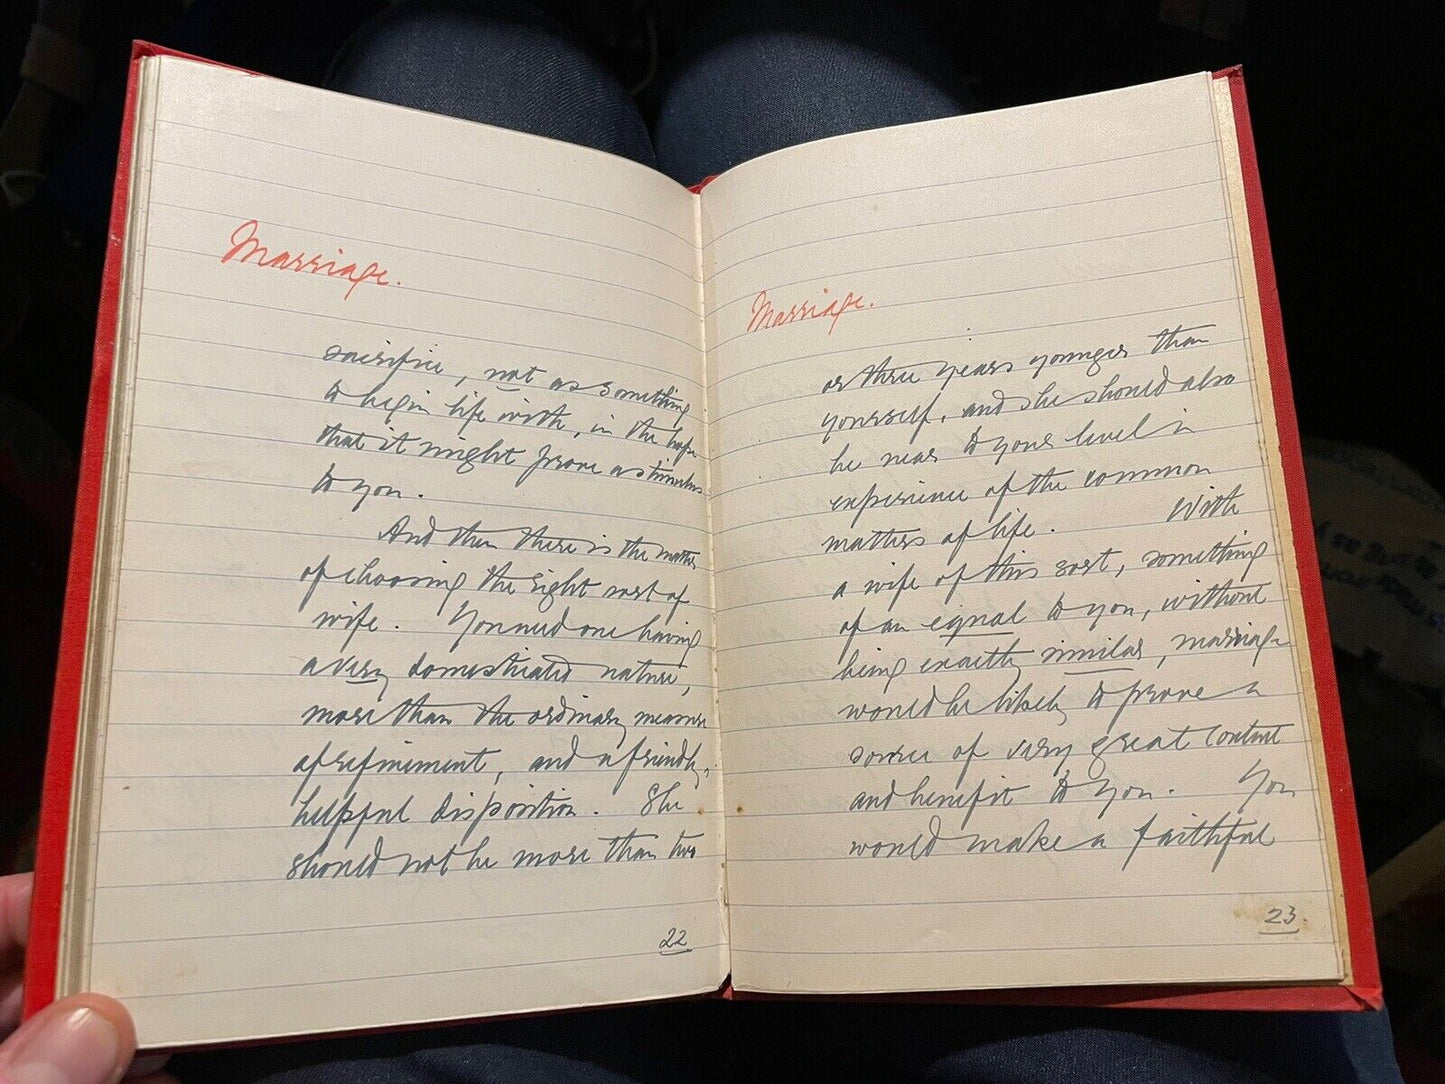 Marriage.
sacrifice, not as something
to begin life with, in the hope
that it might prove a stimulus
to you.
And then there is the matter
of choosing the right sort of
wife. You need one having
a very domesticated nature,
more than the ordinary measure
of refinement, and a friendly,
helpful disposition. She
should not be more than two
22
Marriage.
or three years younger than
yourself, and she should also
be near to your level in
experience of the common
matters of life. With
a wife of this sort, something
of an equal to you, without
being exactly similar, marriage
would be likely to prove a
source of very great content
and benefit to you. You
would make a faithful
23.